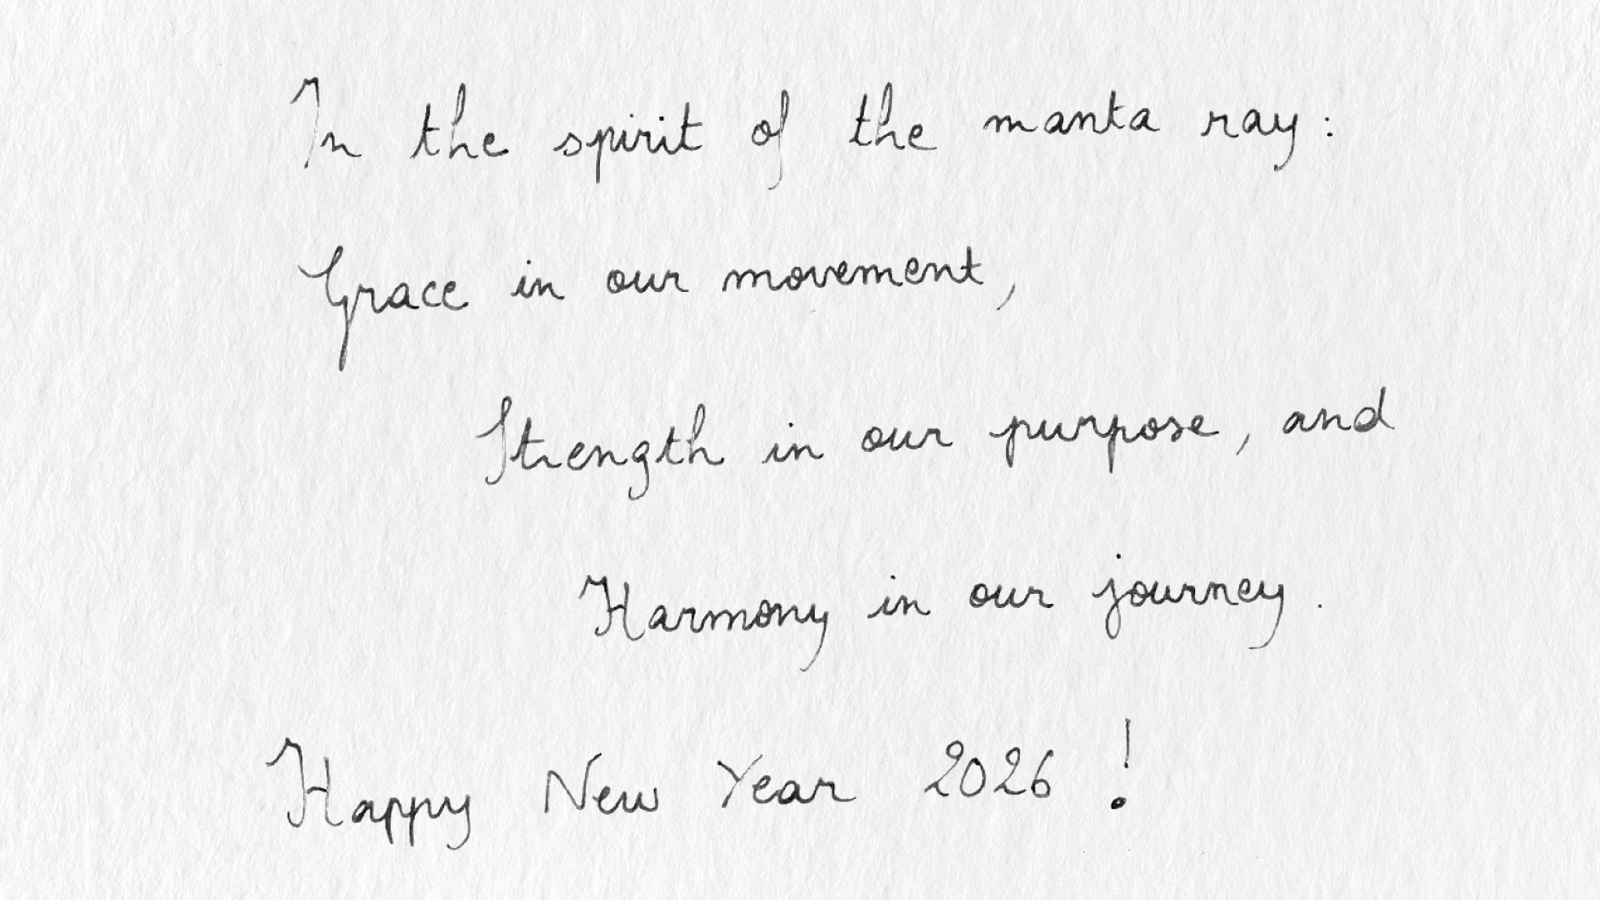 In the spirit of the manta ray :
Grace in our movement,
Strength in our purpose, and
Harmony in our journey.
Happy New Year 2026 !